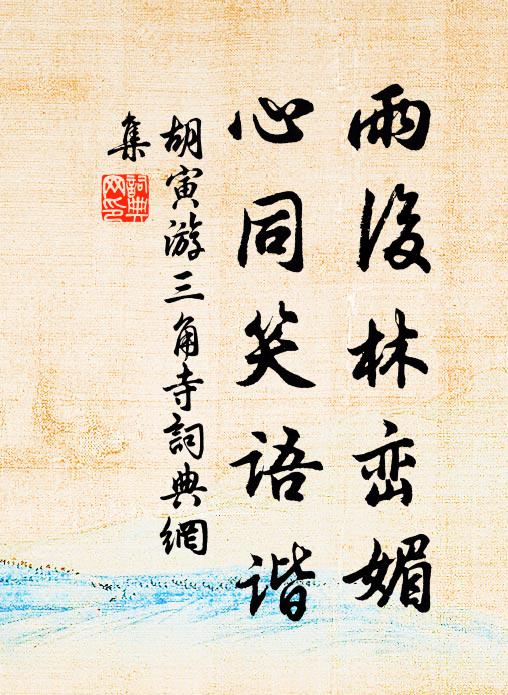 雨後林峦媚
心同笑语谐
胡寅游三角寺詞典網
集
詞典
网印